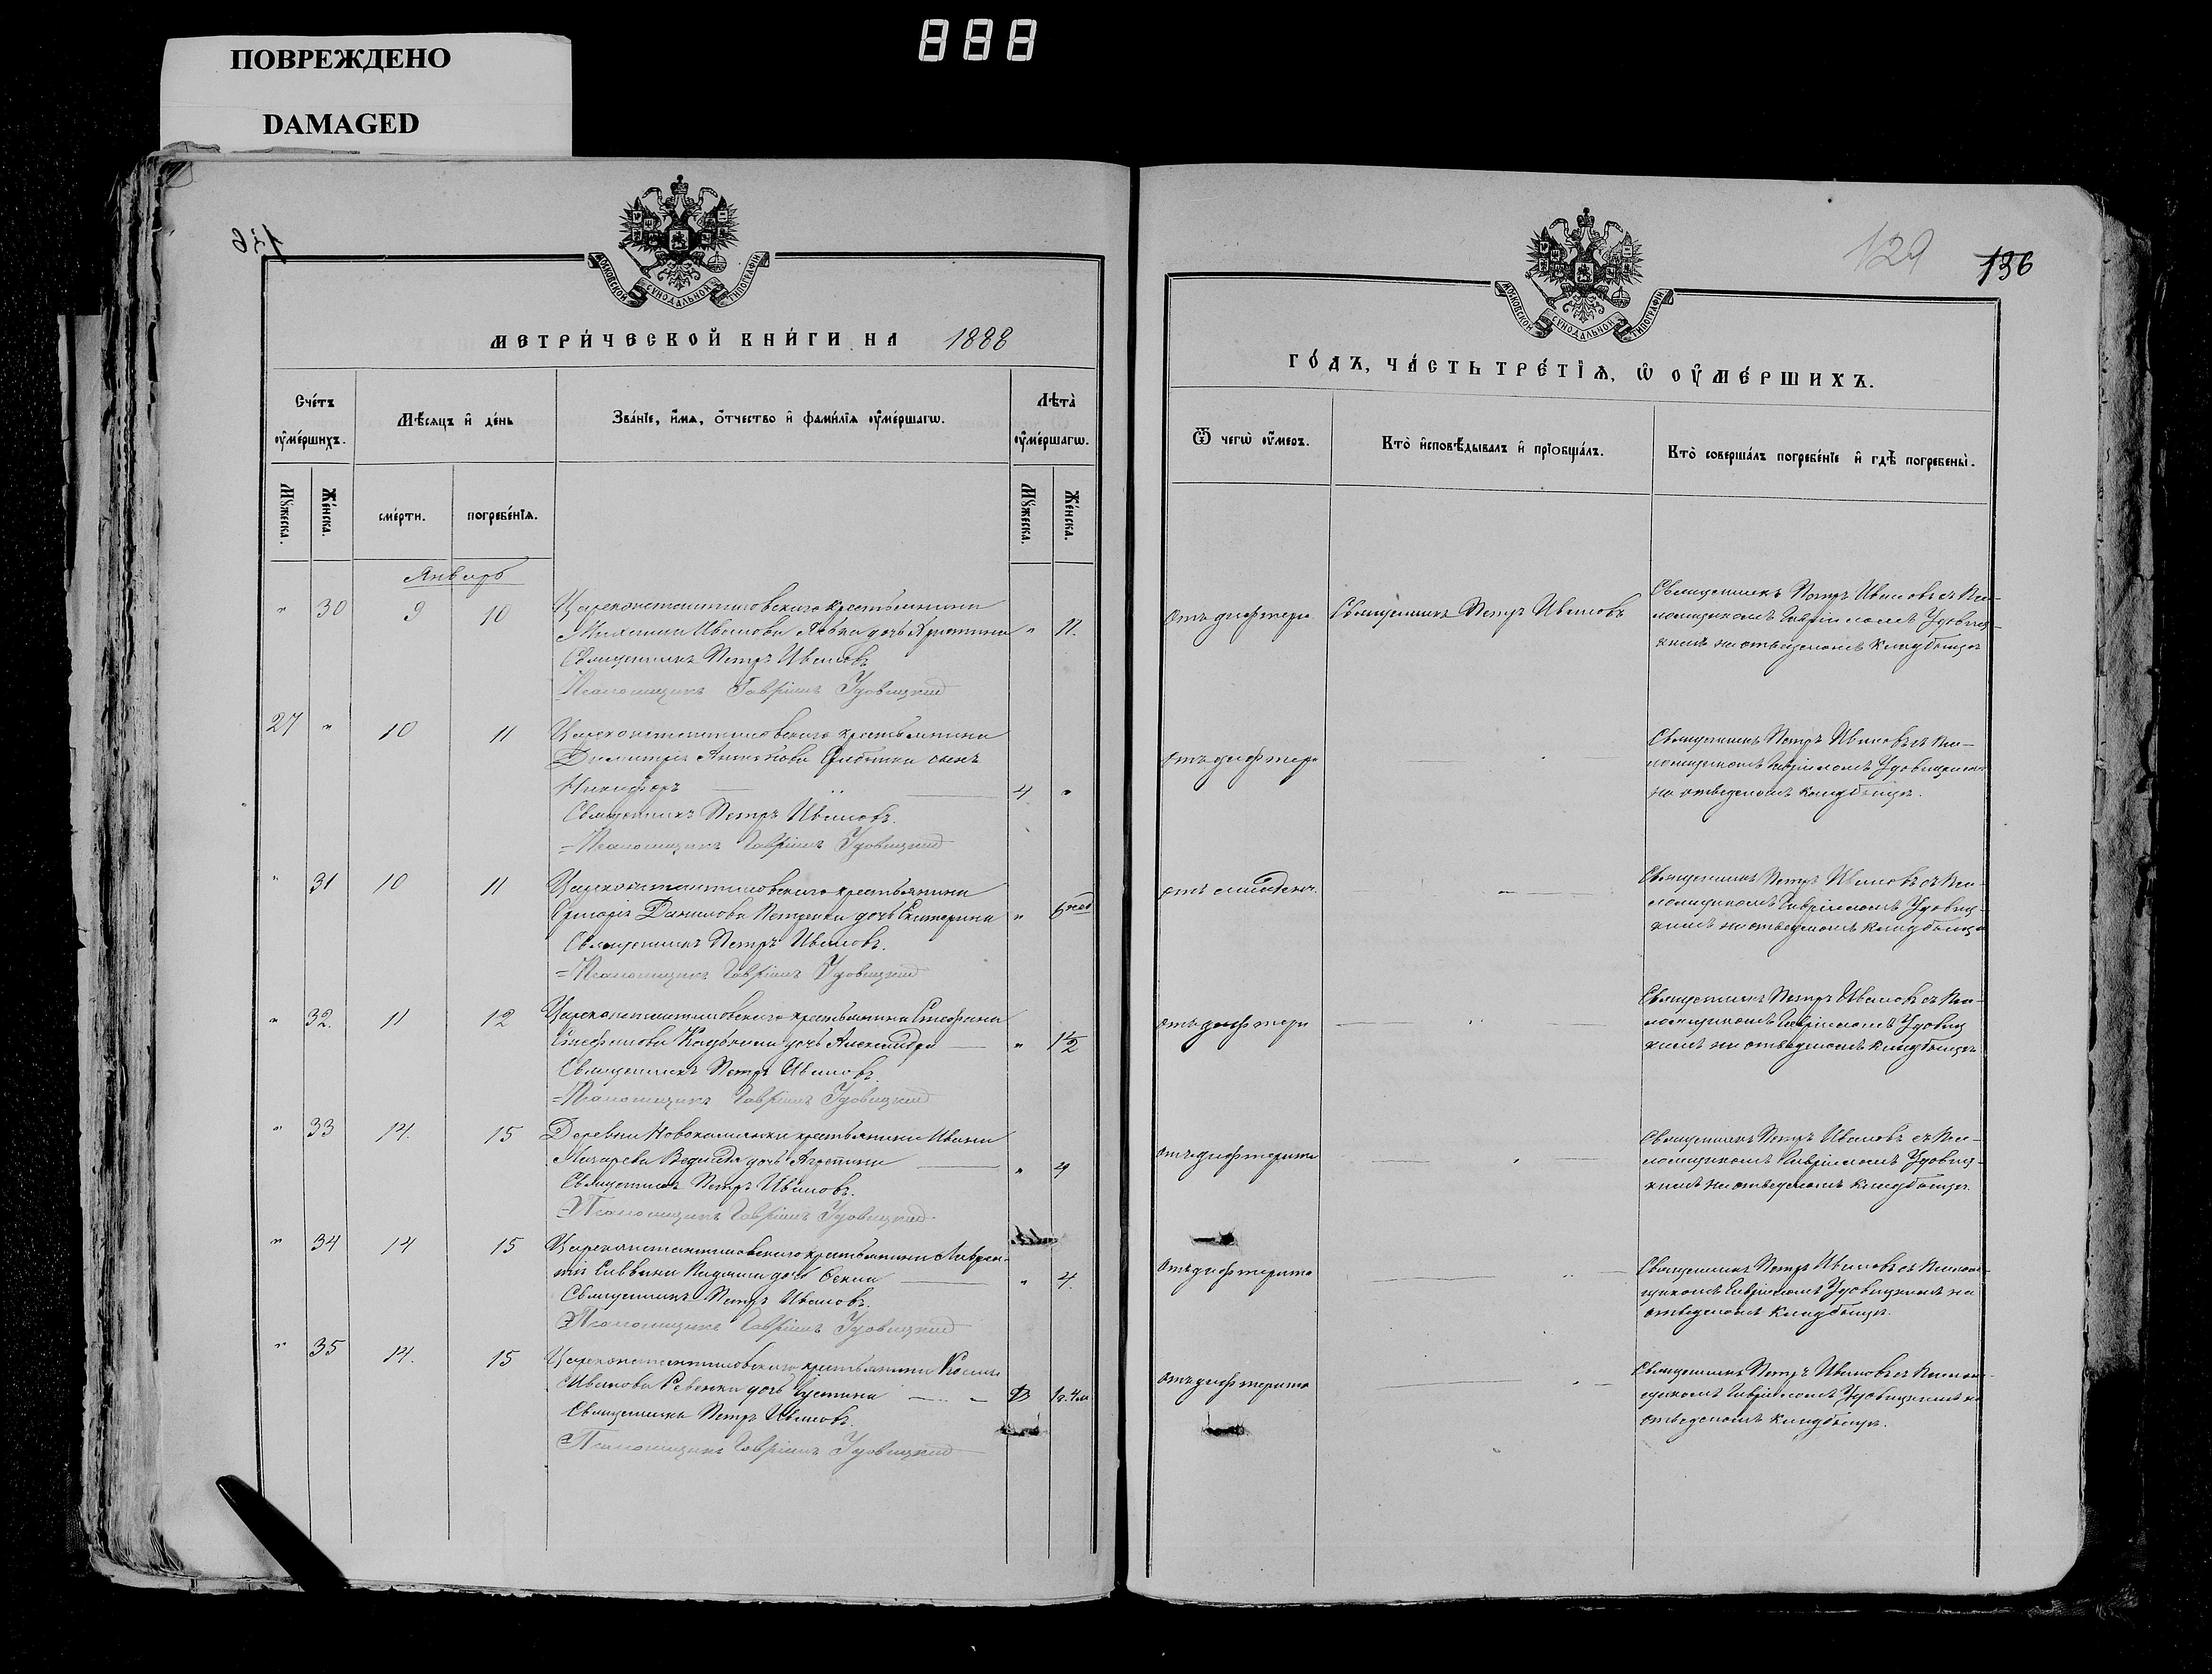 888
ПОВРЕЖДЕНО
DAMAGED
136
МОСКОВСКОЙ СѴНОДАЛЬНОЙ ТИПОГРАФІИ
МЕТРИ́ЧЕСКОЙ КНИ́ГИ НА 1888
Сче́тъ ᲂу҆ме́ршихъ.
Мѣ́сяцъ и҆ де́нь
Зва́нїе, и҆́мя, ѻ҆́тчество и҆ фами́лїя ᲂу҆ме́ршагѡ.
Лѣ́та ᲂу҆ме́ршагѡ.
Мꙋ́жеска.
Же́нска.
сме́рти.
погребе́нїя.
Мꙋ́жеска.
Же́нска.
Январь
" 30 9 10 Цареконстантиновскаго крестьянина
Иванова дочь " 11.
Священникъ Петръ Ивановъ
Псаломщикъ Гавріилъ Удовицкій
27 " 10 11 Цареконстантиновскаго крестьянина
Димитрія сынъ
Никифоръ 4 "
Священникъ Петръ Ивановъ.
Псаломщикъ Гавріилъ Удовицкій
" 31 10 11 Цареконстантиновскаго крестьянина
Григорія Данилова Петренка дочь Екатерина " 6 нед
Священникъ Петръ Ивановъ.
Псаломщикъ Гавріилъ Удовицкій
" 32. 11 12 Цареконстантиновскаго крестьянина Стефана
Стефанова дочь Александра " 1½
Священникъ Петръ Ивановъ.
Псаломщикъ Гавріилъ Удовицкій
" 33 14. 15 Деревни Новокаменки крестьянина Ивана
Макарева дочь Агрипина " 4
Священникъ Петръ Ивановъ.
Псаломщикъ Гавріилъ Удовицкій
" 34 14 15 Цареконстантиновскаго крестьянина Лаврен-
тія Саввина дочь Ксенія " 4.
Священникъ Петръ Ивановъ.
Псаломщикъ Гавріилъ Удовицкій
" 35 14. 15 Цареконстантиновскаго крестьянина Космы
Иванова Ревенки дочь Іустина 1г. 4м
Священникъ Петръ Ивановъ.
Псаломщикъ Гавріилъ Удовицкій
129 136
МОСКОВСКОЙ СѴНОДАЛЬНОЙ ТИПОГРАФІИ
ГО́ДЪ, ЧА́СТЬ ТРЕ́ТЇѦ, Ѡ҆ ОУ҆МЕ́РШИХЪ.
Ѿ чегѡ̀ ᲂу҆́меръ.
Кто̀ и҆сповѣ́дывалъ и҆ прїобща́лъ.
Кто̀ соверша́лъ погребе́нїе и҆ гдѣ̀ погребены̀.
Отъ дифтери Священникъ Петръ Ивановъ Священникъ Петръ Ивановъ съ Пса-
ломщикомъ Гавріиломъ Удовиц-
кимъ на отведеномъ кладбищѣ
отъ дифтери Священникъ Петръ Ивановъ съ Пса-
ломщикомъ Гавріиломъ Удовицкимъ
на отведеномъ кладбищѣ.
отъ младенч. Священникъ Петръ Ивановъ съ Пса-
ломщикомъ Гавріиломъ Удовиц-
кимъ на отведеномъ кладбищѣ
отъ дифтери Священникъ Петръ Ивановъ съ Пса-
ломщикомъ Гавріиломъ Удовиц
кимъ на отведеномъ кладбищѣ
отъ дифтерита Священникъ Петръ Ивановъ съ Пса-
ломщикомъ Гавріиломъ Удовиц-
кимъ на отведеномъ кладбищѣ.
Отъ дифтерита Священникъ Петръ Ивановъ съ Псалом-
щикомъ Гавріиломъ Удовицкимъ на
отведеномъ кладбищѣ.
отъ дифтерита Священникъ Петръ Ивановъ съ Псалом-
щикомъ Гавріиломъ Удовицкимъ на
отведеномъ кладбищѣ.